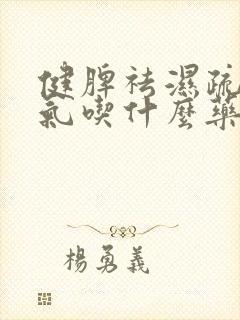 健脾祛濕疏
氣喫什麼藥
楊勇義